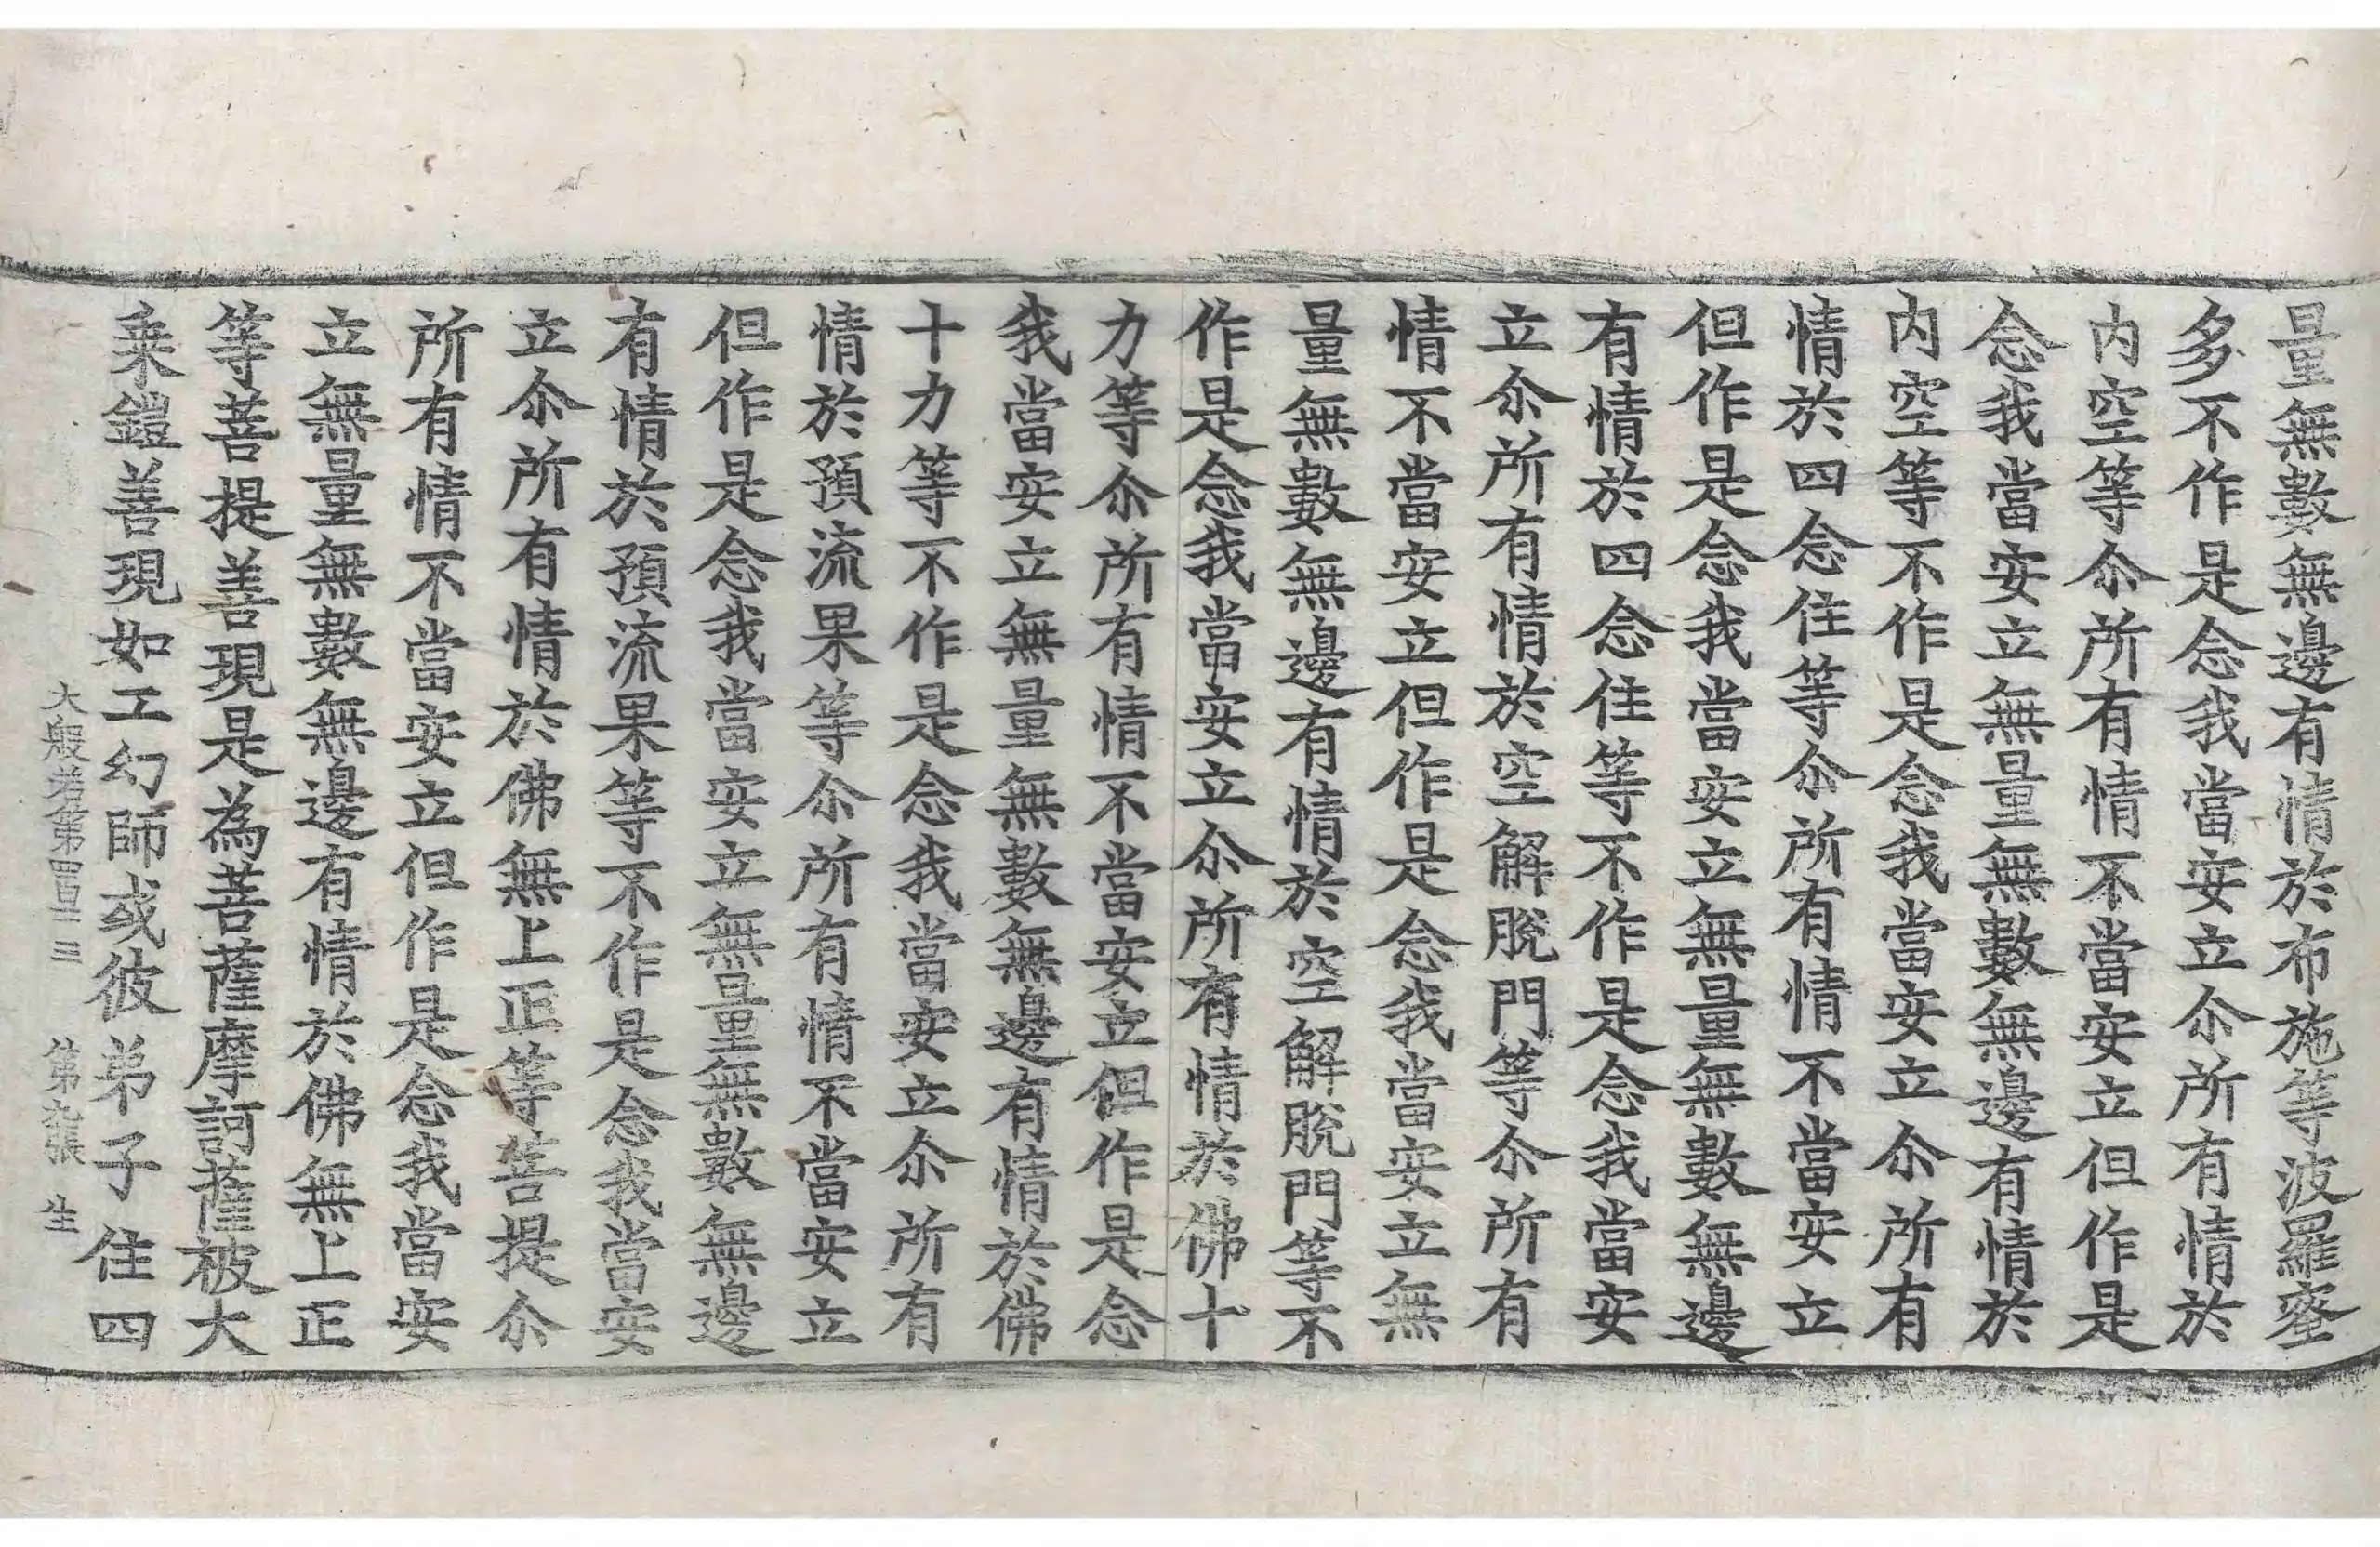 量無數無邊有情於布施等波羅蜜
多不作是念我當安立尒所有情於
内空等尒所有情不當安立但作是
念我當安立無量無數無邊有情於
内空等不作是念我當安立尒所有
情於四念住等尒所有情不當安立
但作是念我當安立無量無數無邊
有情於四念住等不作是念我當安
立尒所有情於空解脫門等尒所有
情不當安立但作是念我當安立無
量無數無邊有情於空解脫門等不
作是念我當安立尒所有情於佛十
力等尒所有情不當安立但作是念
我當安立無量無數無邊有情於佛
十力等不作是念我當安立尒所有
情於預流果等尒所有情不當安立
但作是念我當安立無量無數無邊
有情於預流果等不作是念我當安
立尒所有情於佛無上正等菩提尒
所有情不當安立但作是念我當安
立無量無數無邊有情於佛無上正
等菩提善現是為菩薩摩訶薩被大
乗鎧善現如工幻師或彼弟子住四
大般若第四百一三 第九張 生